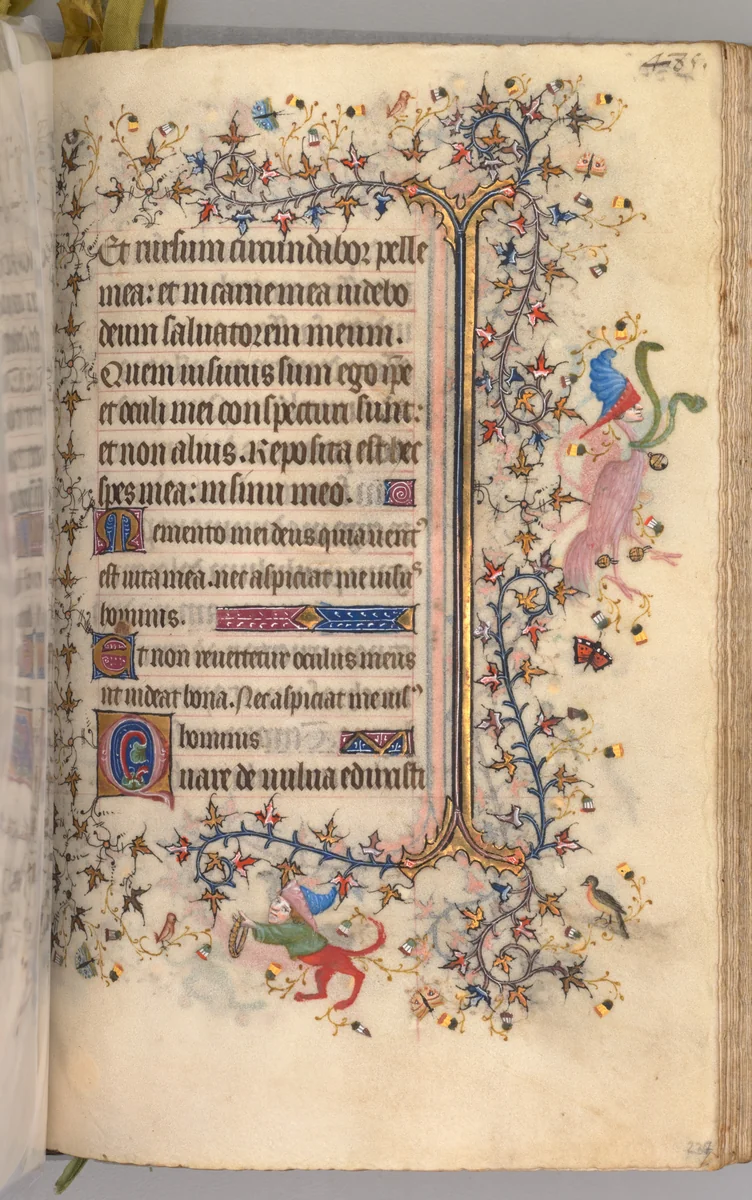 485.
Et rursum circundabor pelle
mea: et in carne mea uidebo
deum saluatorem meum.
Quem uisurus sum ego ip̄e
et oculi mei conspecturi sunt:
et non alius. Reposita est hec
spes mea: in sinu meo.
Memento mei deus quia uent᾽
est uita mea. nec aspiciat me uisus
hominis.
Et non reuertetur oculus meus
ut uideat bona. Nec aspiciat me uis᾽
hominis
Quare de uulua eduxisti